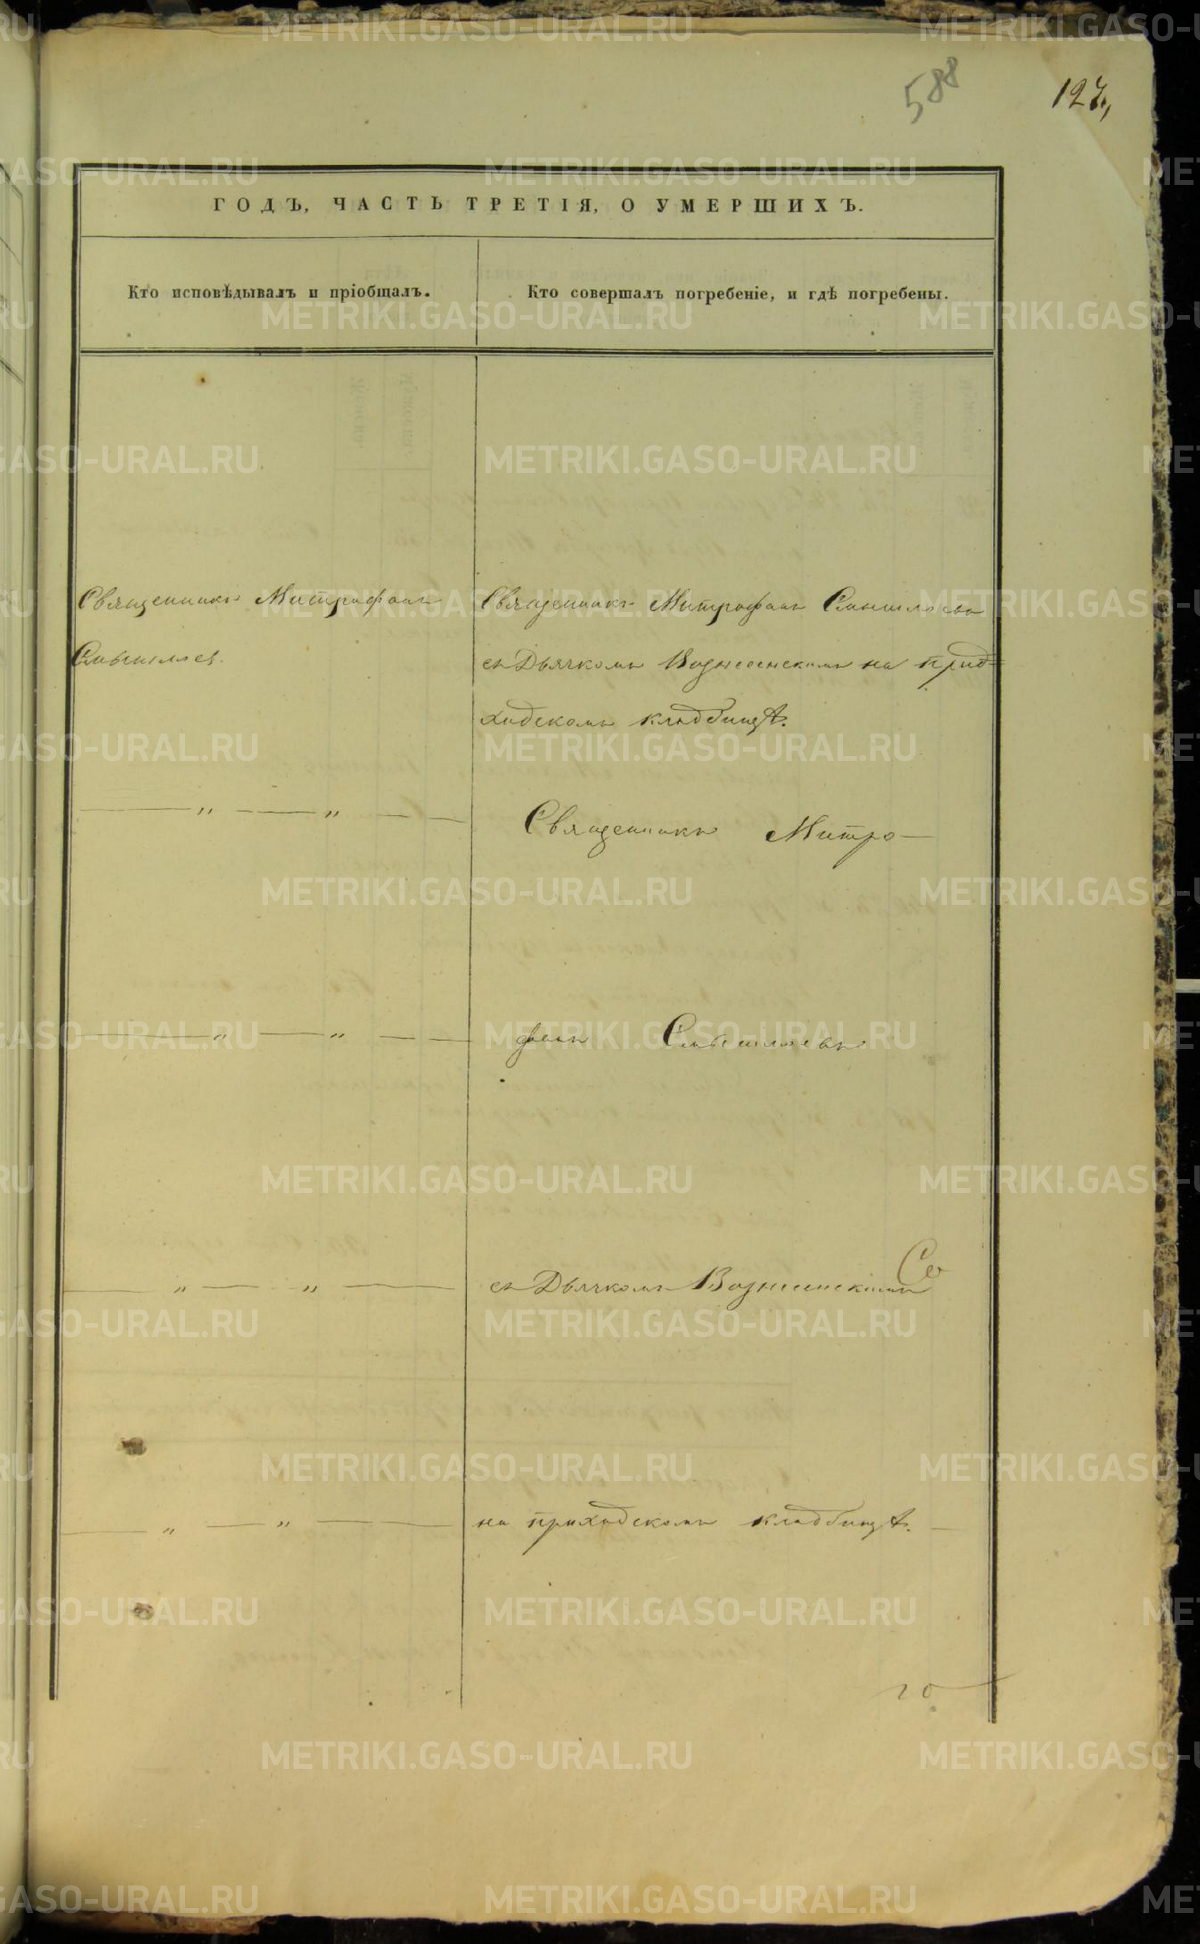 588
127,
ГОДЪ, ЧАСТЬ ТРЕТІЯ, О УМЕРШИХЪ.
Кто исповѣдывалъ и пріобщалъ.
Кто совершалъ погребеніе, и гдѣ погребены.
Священникъ Митрофанъ
Священникъ Митрофанъ
съ Дьячкомъ Вознесенскимъ на при-
ходскомъ кладбищѣ.
— " — " — —
Священникъ Митро-
— " — " — —
фанъ
— " — " —
съ Дьячкомъ Вознесенскимъ
— " — " —
на приходскомъ кладбищѣ.
METRIKI.GASO-URAL.RU